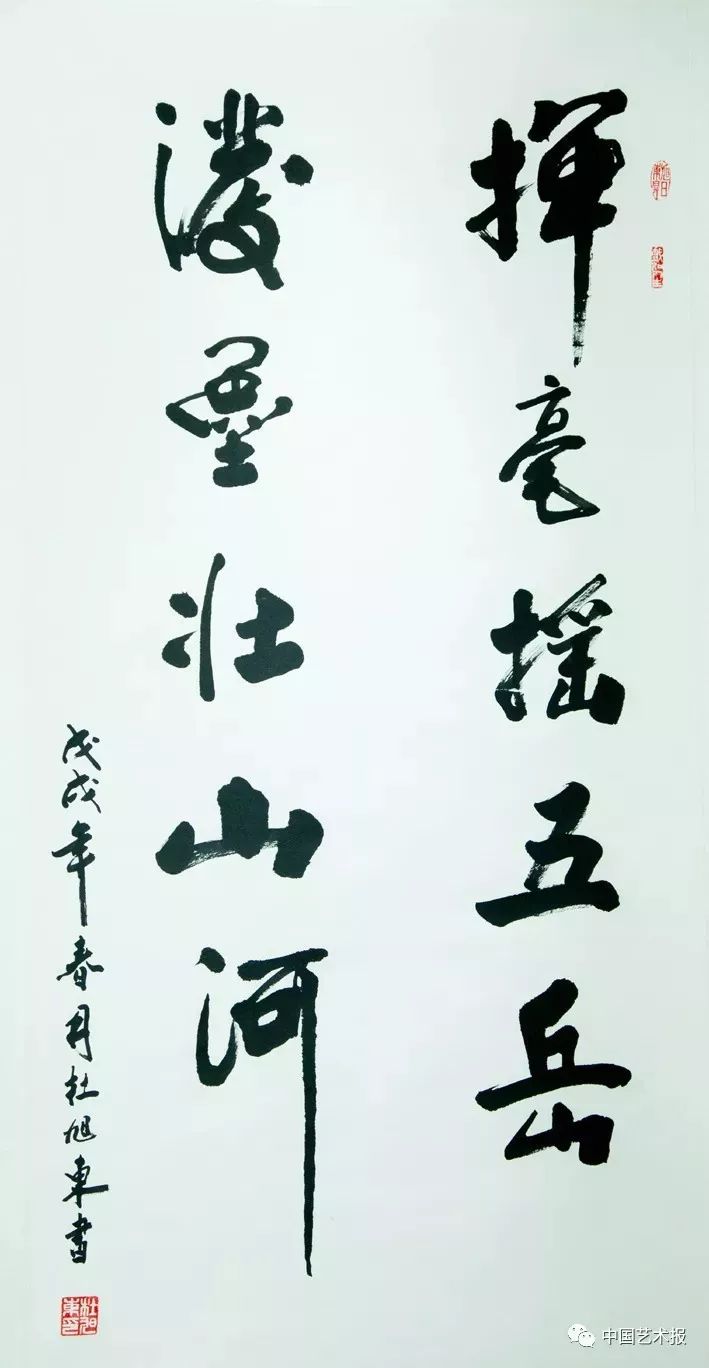 揮毫搖五岳
潑墨壮山河
戊戌年春月杜旭東書
杜旭東印
中国艺术报